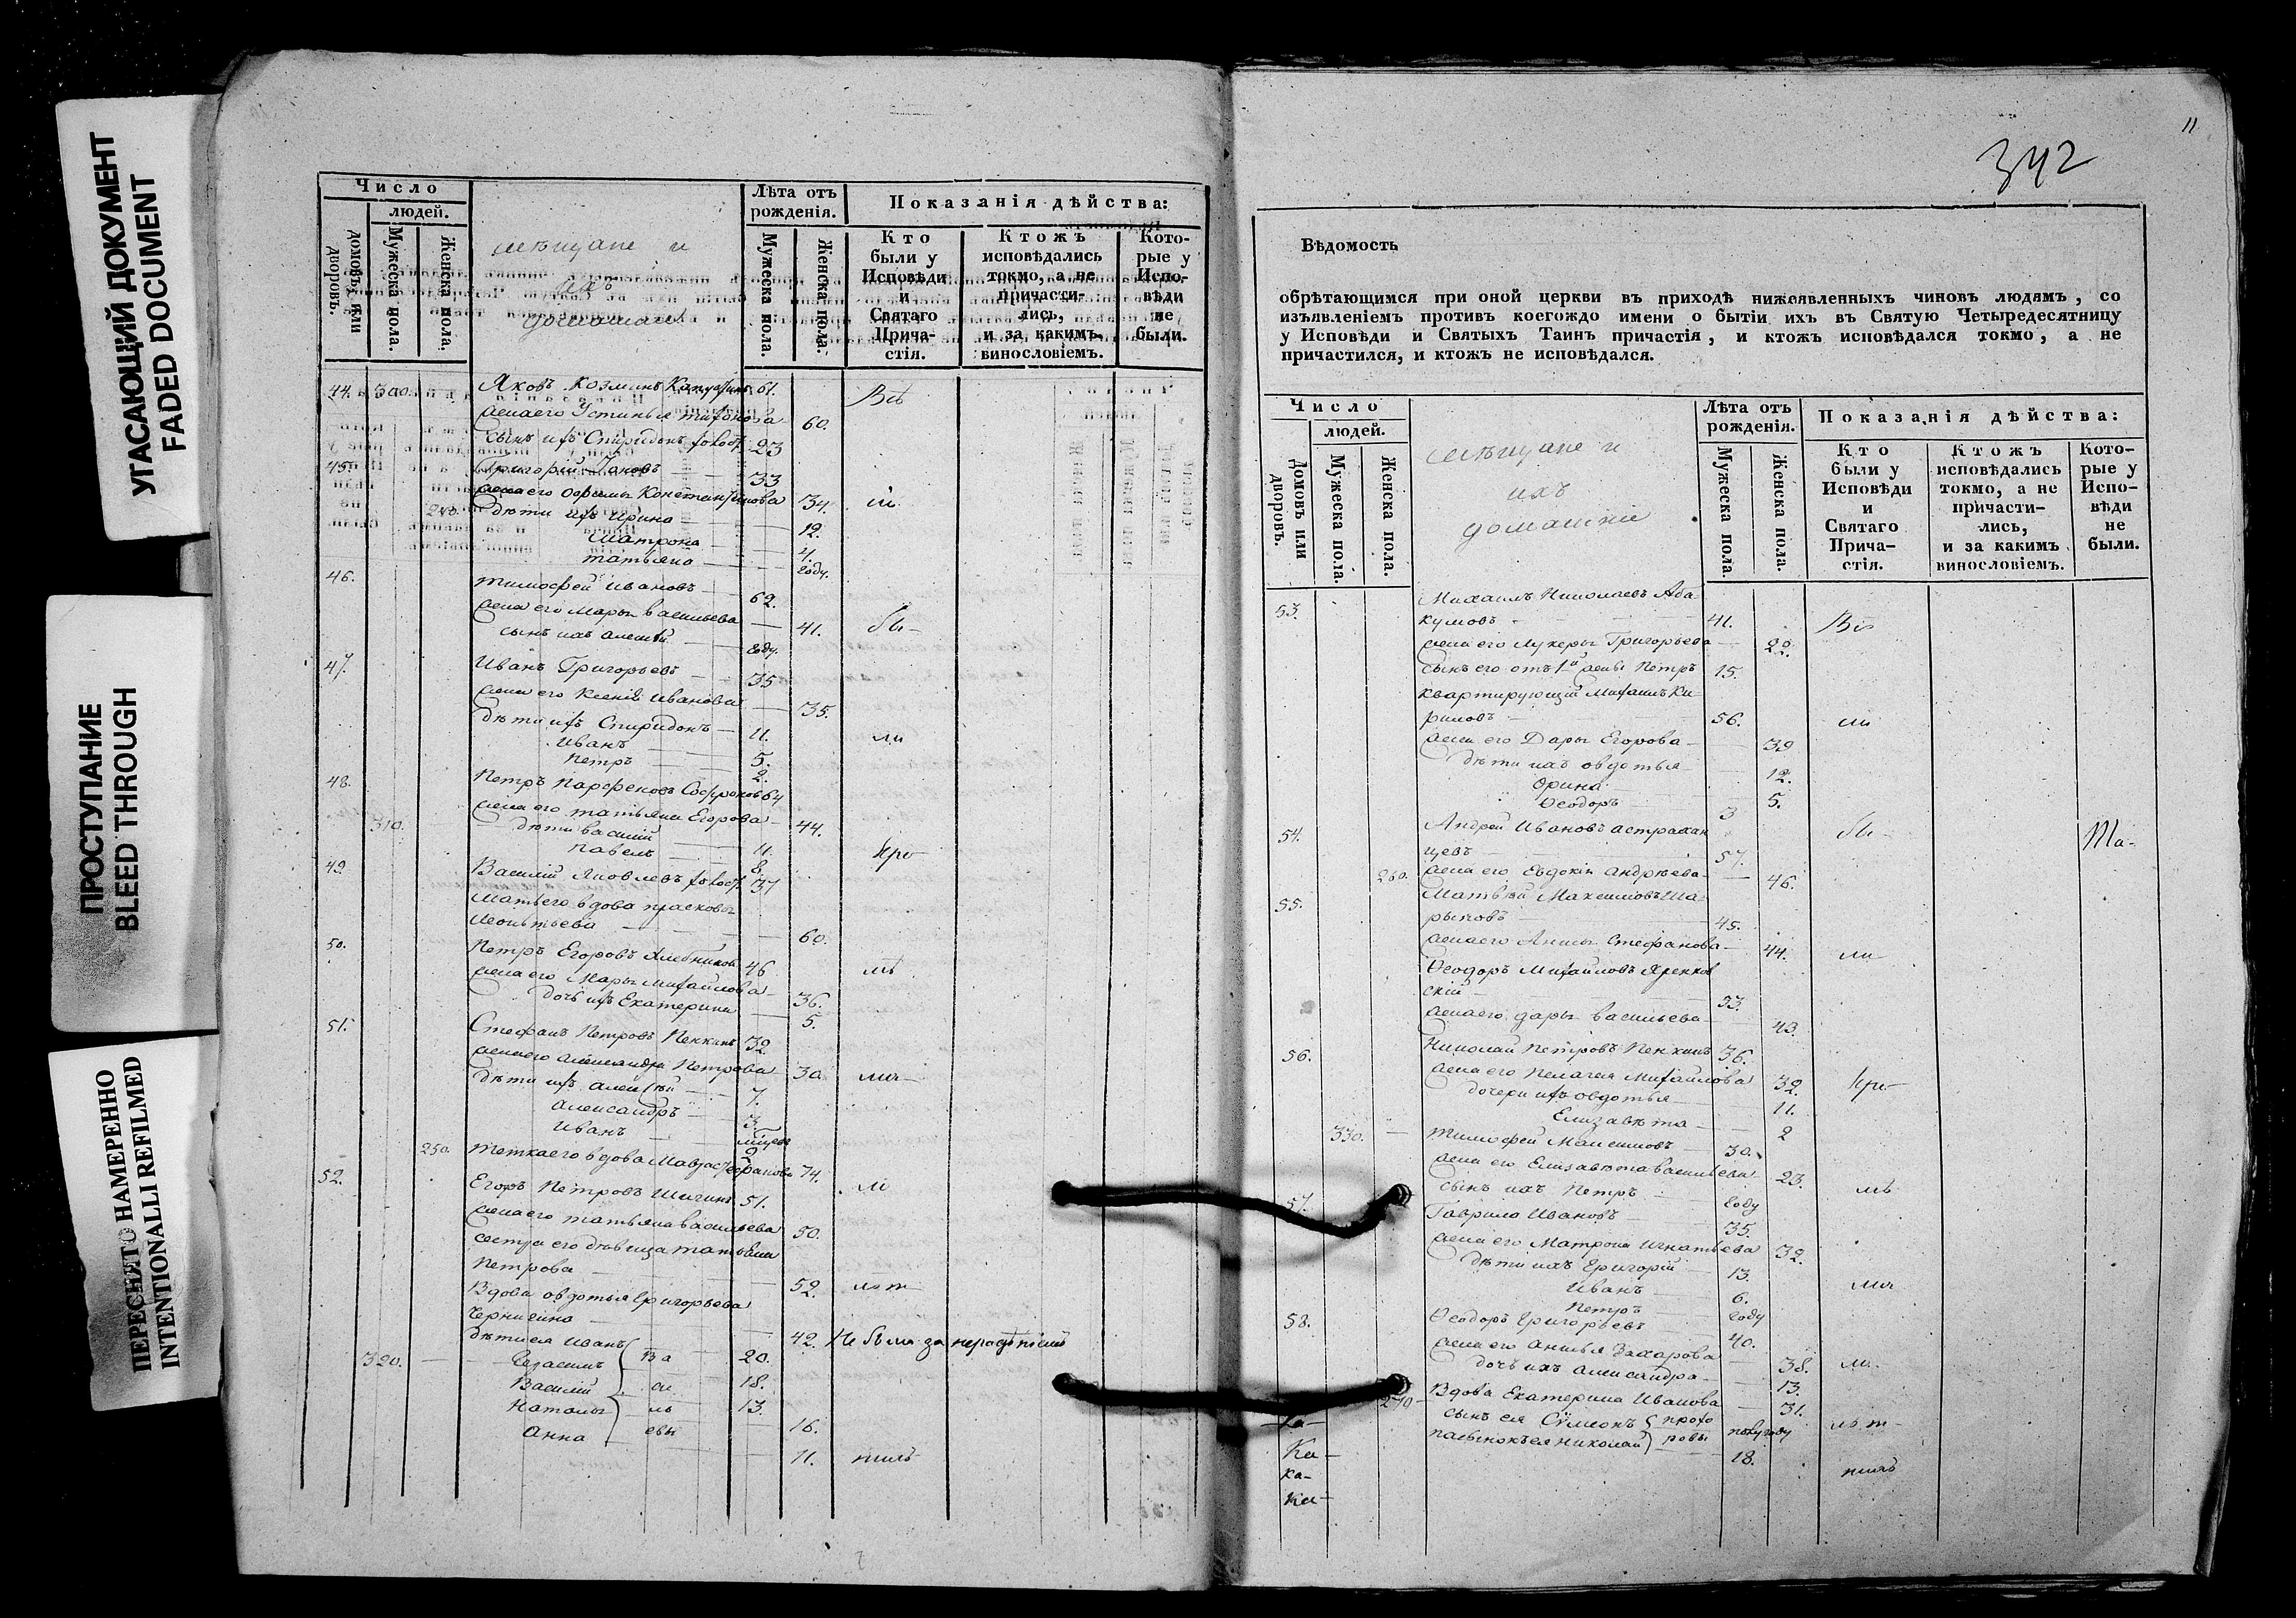 УГАСАЮЩИЙ ДОКУМЕНТ
FADED DOCUMENT
ПРОСТУПАНИЕ
BLEED THROUGH
ПЕРЕСНЯТО НАМЕРЕННО
INTENTIONALLI REFILMED
Число
людей.
домовъ или дворовъ.
Мужеска пола.
Женска пола.
мѣщане и
ихъ
домашніе
Лѣта отъ рожденія.
Мужеска пола.
Женска пола.
Показанія дѣйства:
Кто были у Исповѣди и Святаго Прича-стія.
Ктожъ исповѣдались токмо, а не причасти-лись, и за какимъ винословіемъ.
Кото-рые у Испо-вѣди не были.
44. 300. Яковъ Козминъ 61. Всѣ
жена его Устинья 60.
сынъ ихъ Спиридонъ 23
45. Григорій Яковъ 33
жена его Константинова 34.
240. дѣти ихъ Ирина 12.
Матрона 4.
Татьяна году.
46. Тимофей Ивановъ 62.
жена его Марья Васильева 41. бы-
сынъ ихъ Алексѣй году.
47. Иванъ Григорьевъ 35
жена его Ксенія Иванова 35.
дѣти ихъ Спиридонъ 11. ли
Иванъ 5.
Петръ 2.
48. Петръ Парфеновъ 64
жена его Татьяна Егорова 44.
310. дѣти Василій 11.
Павелъ 8. при-
49. Василій Яковлевъ 37
Мать его вдова Прасковья
Леонтьева 60.
50. Петръ Егоровъ Хлебниковъ 46
жена его Марья Михайлова 36.
дочь ихъ Екатерина 5.
51. Стефанъ Петровъ Пенкинъ 32
жена его Александра Петрова 30
дѣти ихъ Алексѣй 7.
Александръ 3
Иванъ
250. тетка его вдова Мавра Стефанова 74.
52. Егоръ Петровъ 51.
жена его Татьяна Васильева 50.
сестра его дѣвица Татьяна
Петрова 52.
Вдова Овдотья Григорьева
42. Не были за нерадѣніемъ
дѣти ея Иванъ 20.
320. Герасимъ Ва 18.
Василій си 13.
Наталья ль 16.
Анна евы 11.
11
342
Вѣдомость
обрѣтающимся при оной церкви въ приходѣ нижеявленныхъ чиновъ людямъ, со
изъявленіемъ противъ коегождо имени о бытіи ихъ въ Святую Четыредесятницу
у Исповѣди и Святыхъ Таинъ причастія, и ктожъ исповѣдался токмо, а не
причастился, и ктожъ не исповѣдался.
Число
людей.
домовъ или дворовъ.
Мужеска пола.
Женска пола.
мѣщане и
ихъ
домашніе
Лѣта отъ рожденія.
Мужеска пола.
Женска пола.
Показанія дѣйства:
Кто были у Исповѣди и Святаго Прича-стія.
Ктожъ исповѣдались токмо, а не причасти-лись, и за какимъ винословіемъ.
Кото-рые у Испо-вѣди не были.
53. Михаилъ Николаевъ Аба-
кумовъ 41. Всѣ
жена его Лукерья Григорьева 22.
сынъ его отъ 1й жены Петръ 15.
квартирующій Михаилъ Ки-
риловъ 56.
жена его Дарья Егорова 39
дѣти ихъ Овдотья 12.
Орина 5.
Ѳеодоръ 3
54. Андрей Ивановъ Астрахан
цевъ 57. бы- Та-
260. жена его Евдокія Андрѣева 46.
55. Матвѣй Максимовъ Ша-
45.
жена его Анна Стефанова 44. ли
Ѳеодоръ Михайловъ
скій 53.
жена его Дарья Васильева 43.
56. Николай Петровъ Пенкинъ 36.
жена его Пелагея Михайлова 32. при-
дочери ихъ Овдотья 11.
Елизавѣта 2
330. Тимофей Максимовъ 30.
жена его Елизавѣта Васильева 23.
сынъ ихъ Петръ году
57. Гаврило Ивановъ 35.
жена его Матрона Игнатьева 32.
дѣти ихъ Григорій 13.
Иванъ 6.
Петръ году
58. Ѳеодоръ Григорьевъ 40.
жена его Анисья Захарова 38.
дочь ихъ Александра 13.
270 Вдова Екатерина Иванова 31.
сынъ ея Сѷмеонъ прохо
пасынокъ ея Николай ровы 18.
Ка-
ка-
ка-